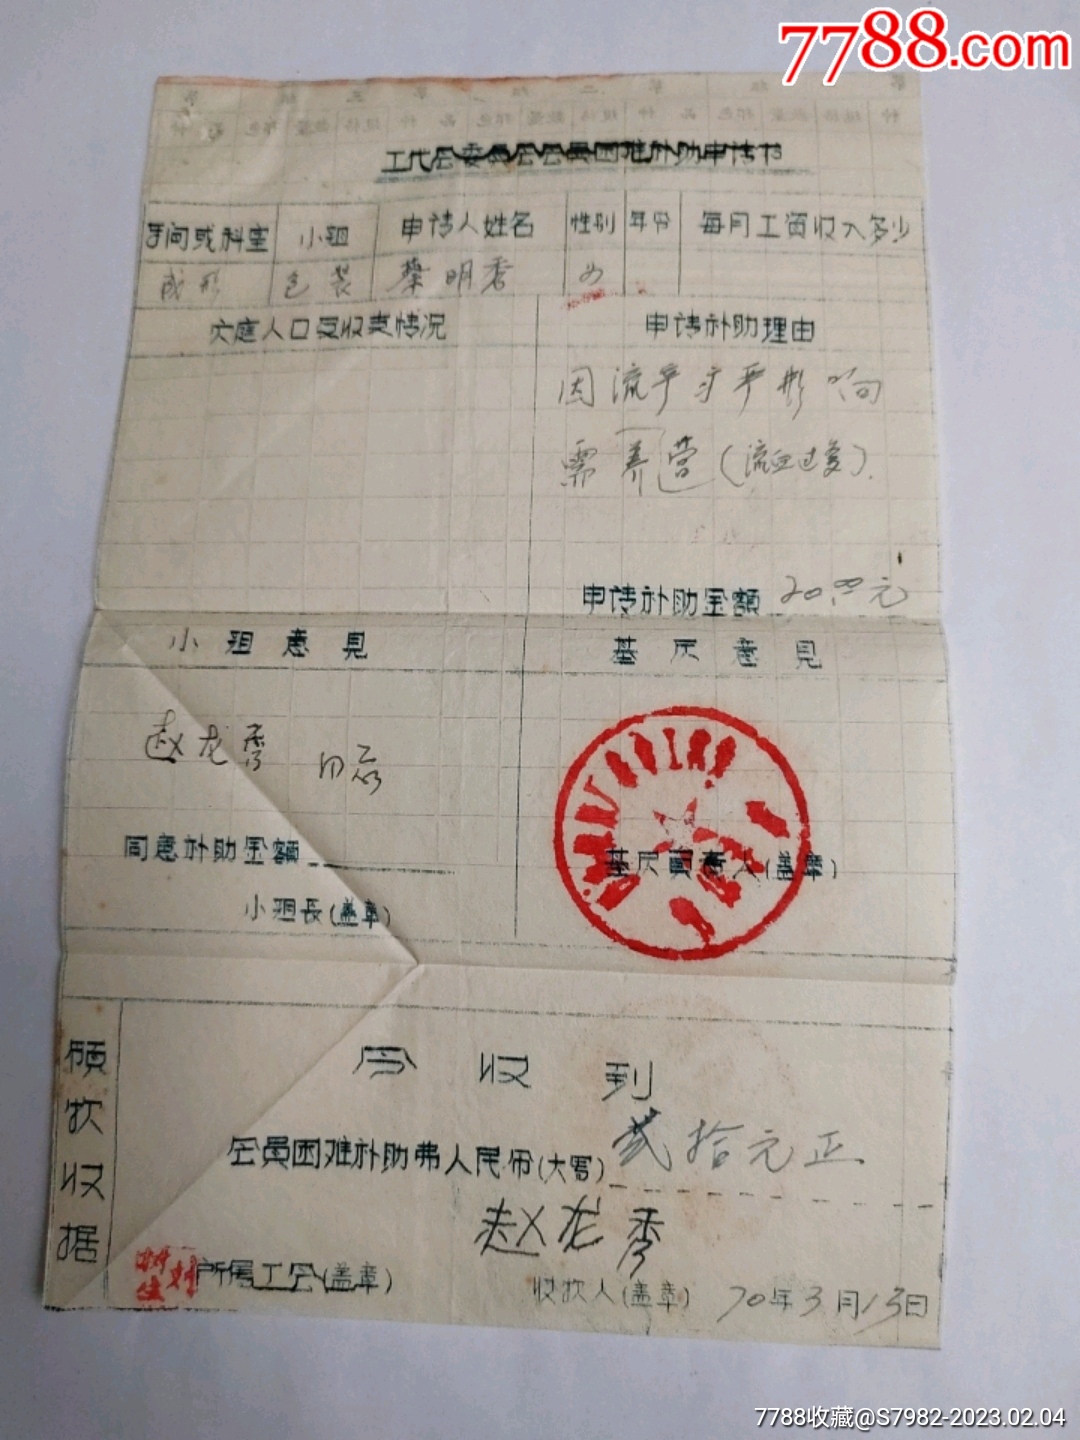 7788.com
工代会委员会会员困难补助申请书
车间或科室 小组 申请人姓名 性别 年份 每月工资收入多少
成形 包装 蔡明秀 女
家庭人口及收支情况 申请补助理由
因流产 严 影响
需 养营(流血过多).
申请补助金额 20.00元
小组意见 基层意见
赵龙秀 同意
同意补助金额
基层负责人(盖章)
小组長(盖章)
领款收据
今收到
会员困难补助费人民币(大写) 贰拾元正
赵龙秀
所属工会(盖章) 收款人(盖章) 70年3月13日
7788收藏@S7982-2023.02.04